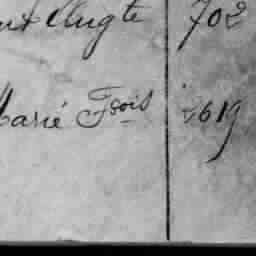 Augte 702
Marié Fcois 2619